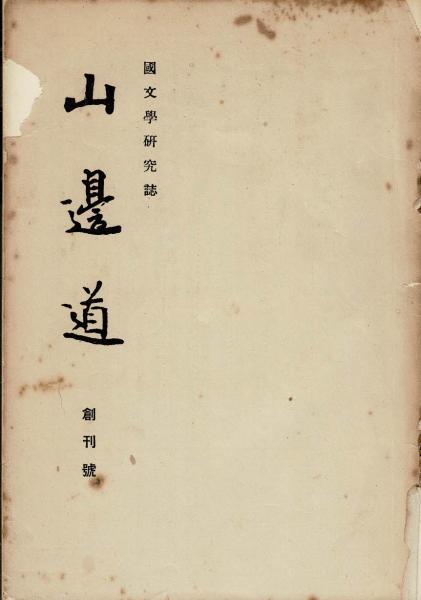 國文學研究誌
山邊道
創刊號